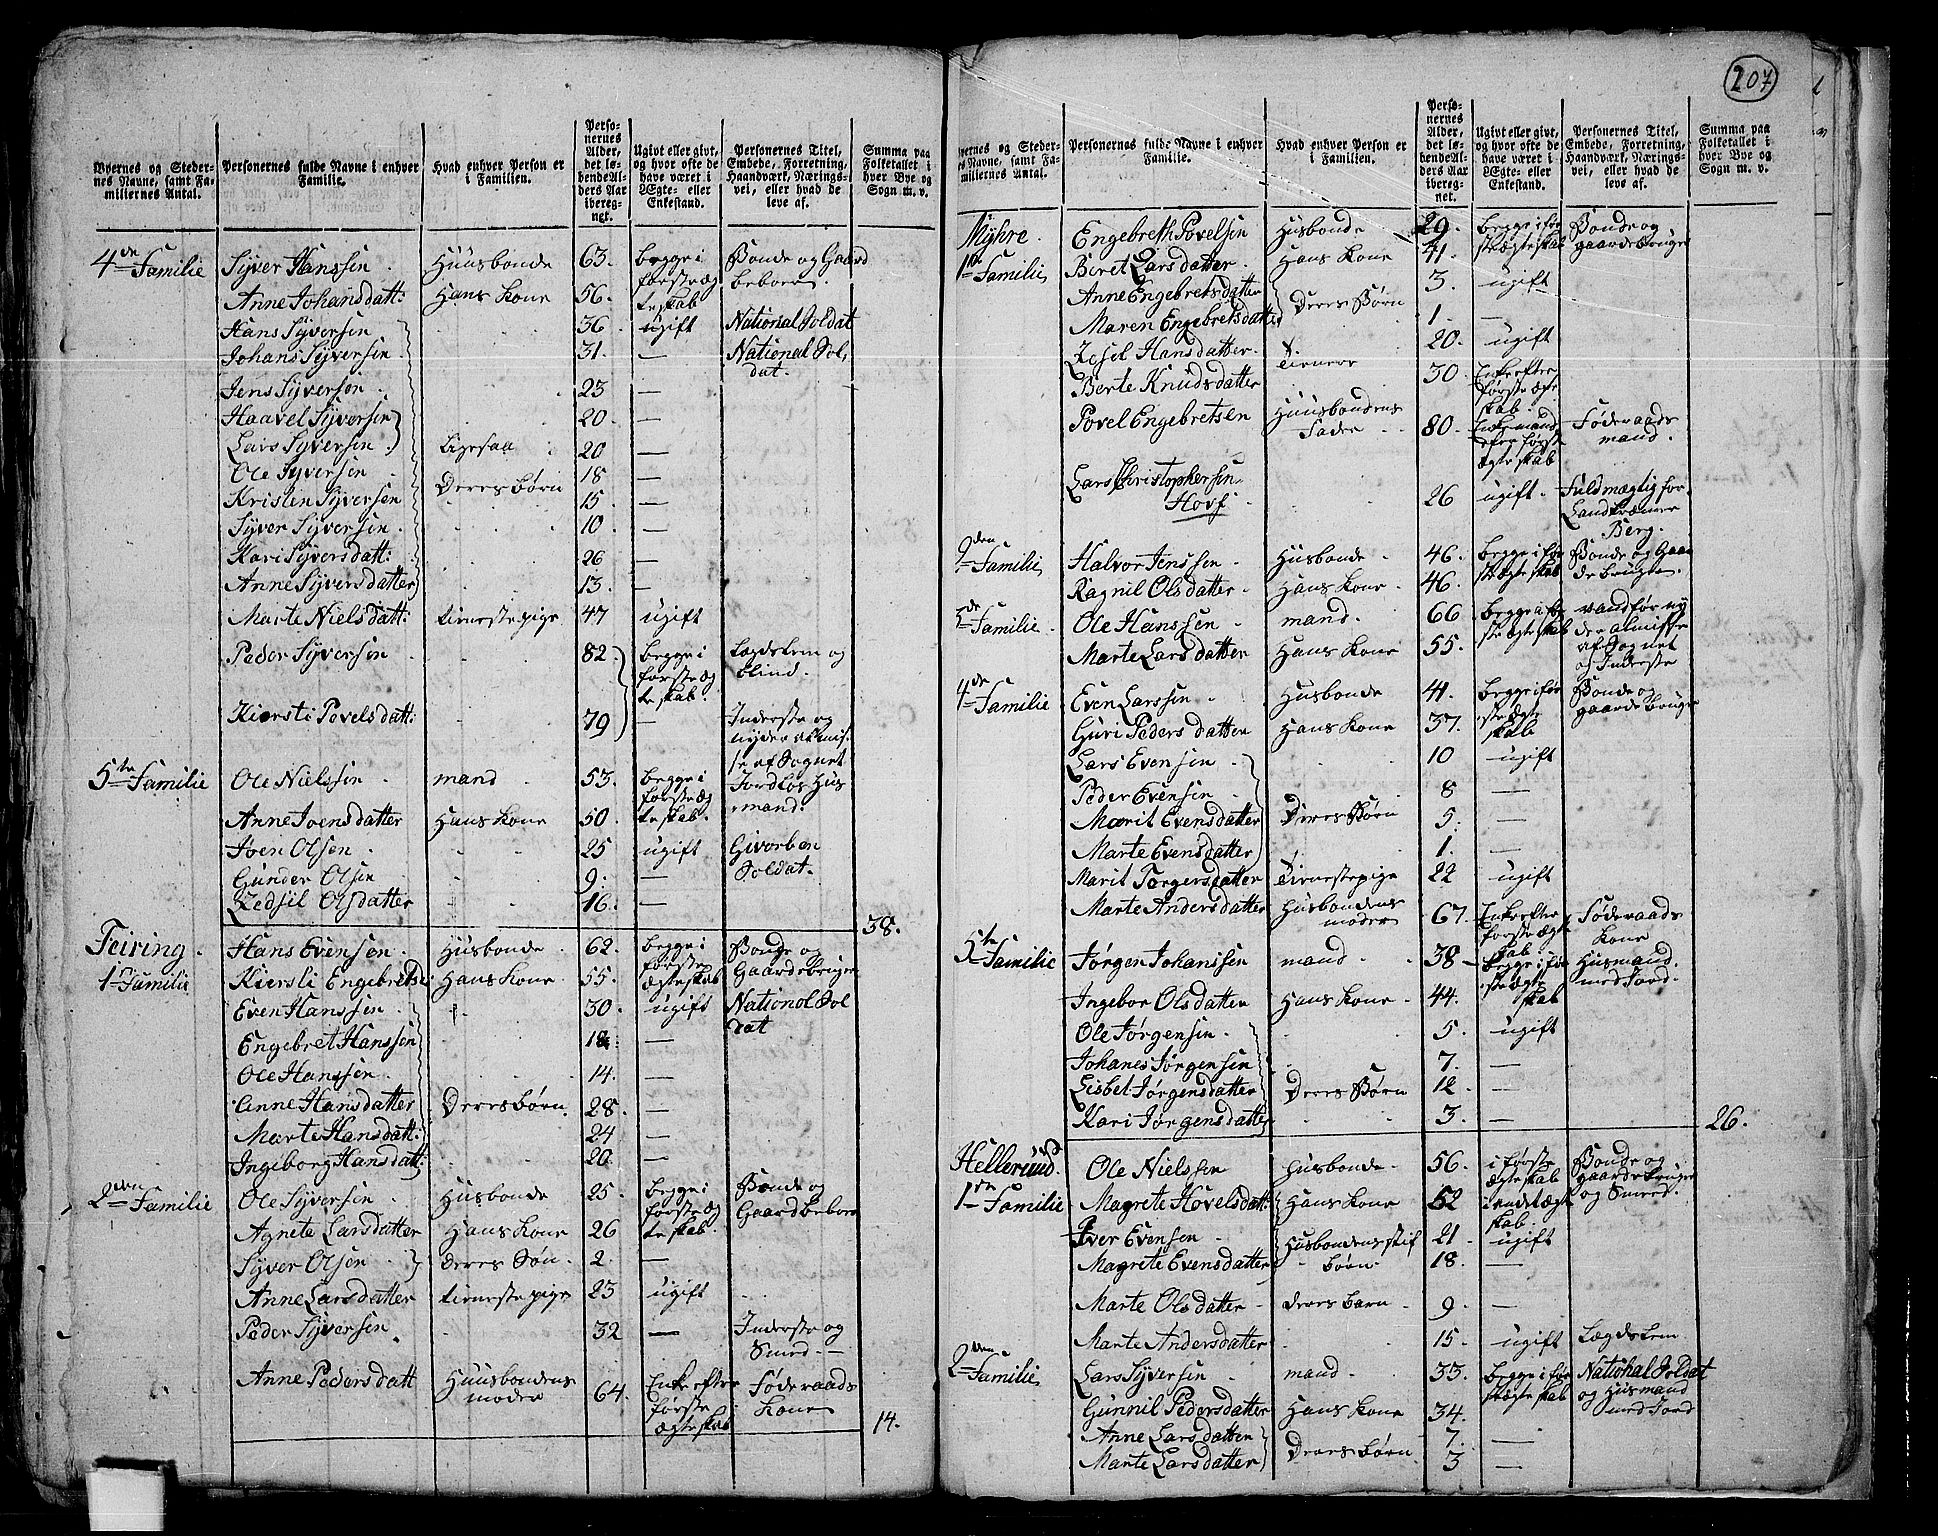 207
Byernes og Stedernes Navne, samt Familiernes Antal. | Personernes fulde Navne i enhver Familie. | Hvad enhver Person er i Familien. | Personernes Alder, det løbende Alders Aar iberegnet. | Ugivt eller givt, og hvor ofte de have været i Ægte- eller Enkestand. | Personernes Titel, Embede, Forretning, Haandværk, Næringsvei, eller hvad de leve af. | Summa paa Folketallet i hver Bye og Sogn m. v.
4de Familie | Syver Hanssen | Huusbonde | 63. | begge i første ægteskab | Bonde og Gaard beboer
Anne Johansdatt: | Hans Kone | 56.
Hans Syversen | 36 | ugift | National Soldat
Johans Syversen | 31. | — | National Soldat.
Jens Syversen | 23 | —
Haavel Syversen | 20. | —
Lars Syversen | 20 | —
Ole Syversen | 18 | —
Kristen Syversen | Deres børn | 15. | —
Syver Syversen | 10. | —
Kari Syversdatt: | 26 | —
Anne Syversdatter | 13. | —
Marte Nielsdatt: | tienestepige | 47 | ugift
Peder Syversen | 82. | begge i første ægteskab. | Lægdslem og blind.
Kiersti Povelsdatt: | 79 | — | Inderste og nyder Almisse af Sognet
5te Familie | Ole Nielssen | mand | 53. | begge i første ægteskab. | Jordløs Husmand.
Anne Joensdatter | Hans Kone | 50.
Joen Olsen | 25 | ugift | Givorben Soldat.
Gunder Olsen | 9. | —
Zedsil Olsdatter | 16. | —
38.
Feiring.
1ste Familie | Hans Evensen | Husbonde | 62. | begge i første ægteskab | Bonde og Gaardbruger
Kiersti Engebretsd: | Hans Kone | 55.
Even Hanssen | 30. | ugift | National Soldat
Engebret Hanssen | 18. | —
Ole Hanssen | 14. | —
Anne Hansdatter | Deres børn. | 28. | —
Marte Hansdatt: | 24 | —
Ingeborg Hansdatt: | 20. | —
2den Familie | Ole Syversen | Husbonde | 25. | begge i første ægteskab. | Bonde og Gaardbeboer
Agnete Larsdatter | Hans Kone | 26
Syver Olsen | Deres Søn | 2. | —
Anne Larsdatter | tienestepige | 23 | ugift
Peder Syversen. | 32 | — | Inderste og Smed.
Anne Pedersdatt | Huusbondens moder | 64. | Enke efter første ægteskab | Føderaads Kone
14.
Byernes og Stedernes Navne, samt Familiernes Antal. | Personernes fulde Navne i enhver Familie. | Hvad enhver Person er i Familien. | Personernes Alder, det løbende Alders Aar iberegnet. | Ugivt eller givt, og hvor ofte de have været i Ægte- eller Enkestand. | Personernes Titel, Embede, Forretning, Haandværk, Næringsvei, eller hvad de leve af. | Summa paa Folketallet i hver Bye og Sogn m. v.
Myhre.
1ste Familie | Engebreth Povelsen | Husbonde | 29. | begge i første ægteskab | Bonde og gaardebruger
Beret Larsdatter | Hans Kone | 41.
Anne Engebretsdatter | Deres Børn | 3. | ugift
Maren Engebretsdatter | 1. | —
Zesel Hansdatter | Tienere | 20. | ugift
Berte Knudsdatter | 30. | Enke efter første ægteskab.
Povel Engebretsen | Huusbondens Fader | 80. | Enkemand efter første ægteskab | Føderaads mand.
Lars Christophersen Hovf | 26 | ugift. | Fuldmægtig for Landkræmer Berg.
2den Familie | Halvor Jenssen | Husbonde | 46. | begge i første ægteskab | Bonde og Gaardebruger.
Ragnil Olsdatter | Hans Kone | 46.
3de Familie | Ole Hanssen | mand. | 66 | begge i første ægteskab | vandfør nyder almisse af Sognet og Inderste
Marte Larsdatter | Hans Kone | 55.
4de Familie | Even Larssen | Husbonde | 41. | begge i første ægteskab | Bonde og gaardebruger
Guri Pedersdatter | Hans Kone | 37.
Lars Evensen | 10 | ugift
Peder Evensen | 8 | —
Marit Evensdatter | Deres Børn | 5. | —
Marte Evensdatter | 1. | —
Marit Torgersdatter | Tienestepige | 22 | ugift
Marte Andersdatter | Husbondens moder | 67. | Enke efter første ægteskab | Føderaads Kone
5te Familie | Jørgen Johanssen | mand | 38 | begge i første ægteskab | Husmand med Jord.
Ingebor Olsdatter | Hans Kone | 44.
Ole Jørgensen | 5. | ugift
Johanes Jørgensen | 7. | —
Lisbet Jørgensdatter | Deres Børn | 12 | —
Kari Jørgensdatter | 3. | —
26.
Hellerund
1ste Familie | Ole Nielssen | Husbonde | 56. | i første ægteskab | Bonde og gaardebruger og Smed.
Magrete Hovelsdatt: | Hans Kone | 52 | i andet ægteskab
Iver Evensen | Husbondens stif børn | 21. | ugift
Magrete Evensdatter | 18. | —
Marte Olsdatter | deres barn | 9. | —
Marte Andersdatter | 15. | ugift | Lægdslem
2den Familie | Lars Syversen | mand. | 33. | begge i første ægteskab | National Soldat og Husmand med Jord
Gunnil Pedersdatter | Hans Kone | 34.
Anne Larsdatter | Deres børn | 7. | —
Marte Larsdatter | 3 | —